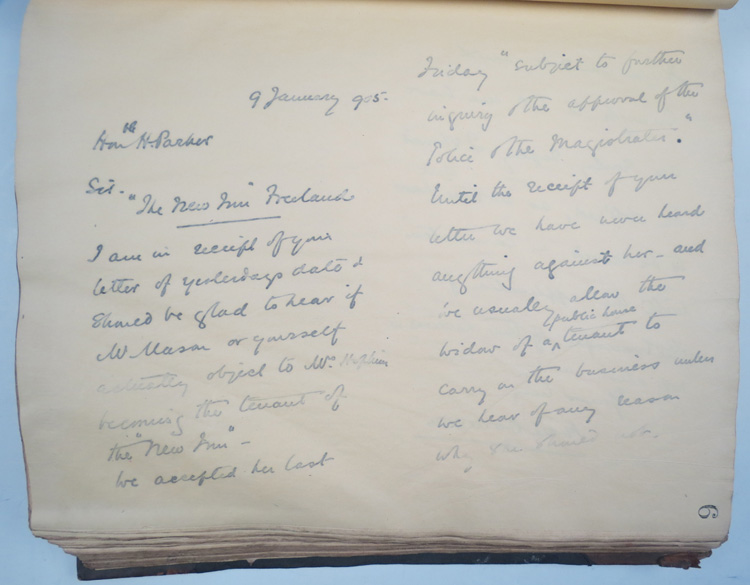 9 January 905-
Honble H Parker
Sir-
"The New Inn" Freeland
I am in receipt of your
letter of yesterdays date &
should be glad to hear if
Mr Mason or yourself
actually object to Mrs Hopkins
becoming the tenant of
the "New Inn" -
We accepted her last
Friday "subject to further
inquiry & the approval of the
Police & the Magistrates."
Until the receipt of your
letter we have never heard
anything against her - and
we usually allow the
widow of a public house tenant to
carry on the business unless
we hear of any reason
why
6